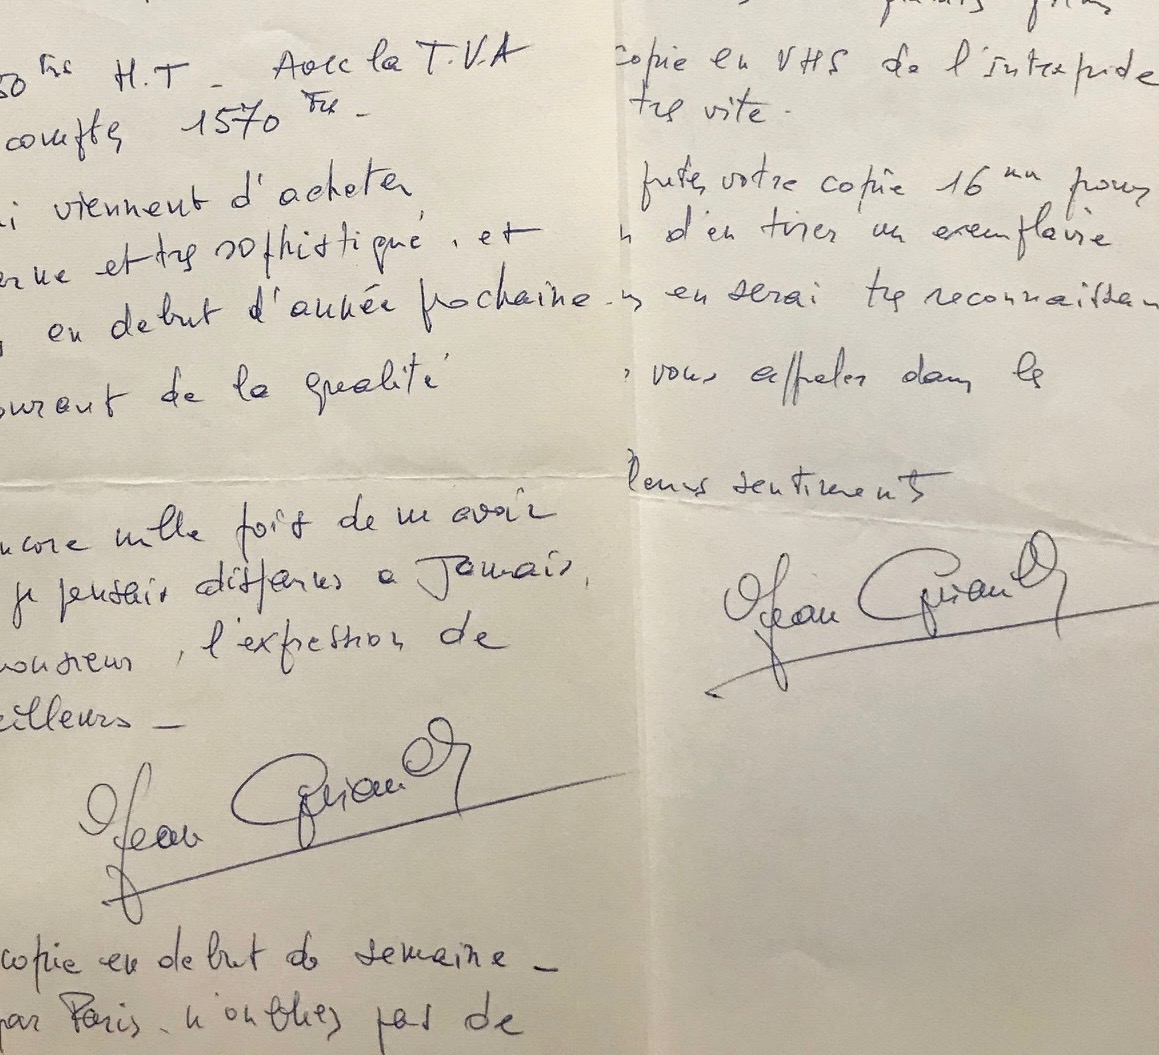 50 Frs H.T - Avec la T.V.A
compte, 1570 Frs -
i viennent d'acheter
erne et très sophistiqué, et
en debut d'année prochaine -
ourant de la qualité
ncore mille fois de m avoir
je pensais disparus a Jamais,
onsieur, l'expression de
eilleurs -
Jean Guiand
copie en debut de semaine -
par Paris. n'oubliez pas de
copie en VHS de l'intrepide
très vite -
votre copie 16 mm pour
d'en tirer un exemplaire
en serai très reconnaissan
vous appeler dans le
leurs sentiments
Jean Guiand